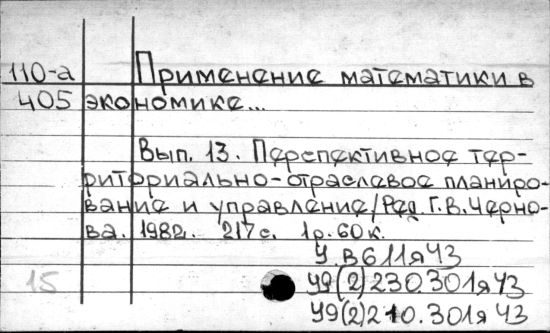 110-а Применение математики в
405 экономике...
Вып. 13. Перспективное тер-
риториально-отраслевое планиро-
вание и управление/Ред. Г.В.Черно-
ва. 1982. 217с. 1р.60к.
У.В611я43
15 У9(2)230.301я43
У9(2)210.301я43